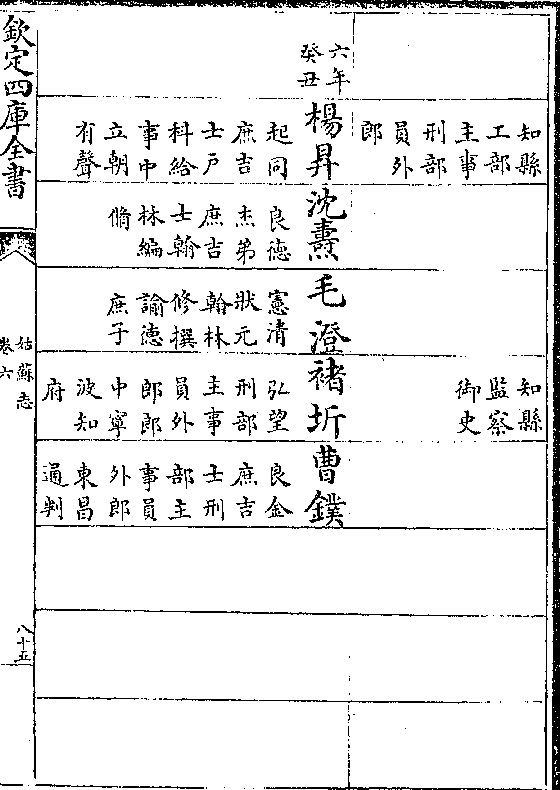 知縣
工部
主事
刑部
員外
郎
知縣
監察
御史
六年
癸丑
楊昇
起同
庶吉
士戶
科給
事中
立朝
有聲
沈燾
良德
杰弟
庶吉
士翰
林編
脩
毛澄
憲清
狀元
翰林
修撰
諭德
庶子
褚圻
弘望
刑部
主事
員外
郎郎
中寧
波知
府
曹鏷
良金
庶吉
士刑
部主
事員
外郎
東昌
通判
欽定四庫全書
姑蘇志
卷六
八十五